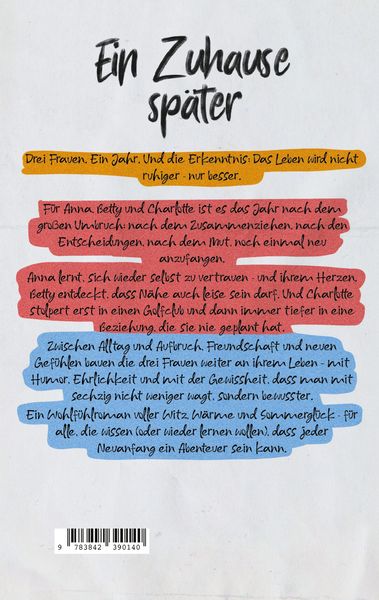 Ein Zuhause
später
Drei Frauen. Ein Jahr. Und die Erkenntnis: Das Leben wird nicht
ruhiger - nur besser.
Für Anna, Betty und Charlotte ist es das Jahr nach dem
großen Umbruch: nach dem Zusammenziehen, nach den
Entscheidungen, nach dem Mut, noch einmal neu
anzufangen.
Anna lernt, sich wieder selbst zu vertrauen - und ihrem Herzen.
Betty entdeckt, dass Nähe auch leise sein darf. Und Charlotte
stolpert erst in einen Golfclub und dann immer tiefer in eine
Beziehung, die sie nie geplant hat.
Zwischen Alltag und Aufbruch, Freundschaft und neuen
Gefühlen bauen die drei Frauen weiter an ihrem Leben - mit
Humor, Ehrlichkeit und mit der Gewissheit, dass man mit
sechzig nicht weniger wagt, sondern bewusster.
Ein Wohlfühlroman voller Witz, Wärme und Sommerglück - für
alle, die wissen (oder wieder lernen wollen), dass jeder
Neuanfang ein Abenteuer sein kann.
9 783842 390140